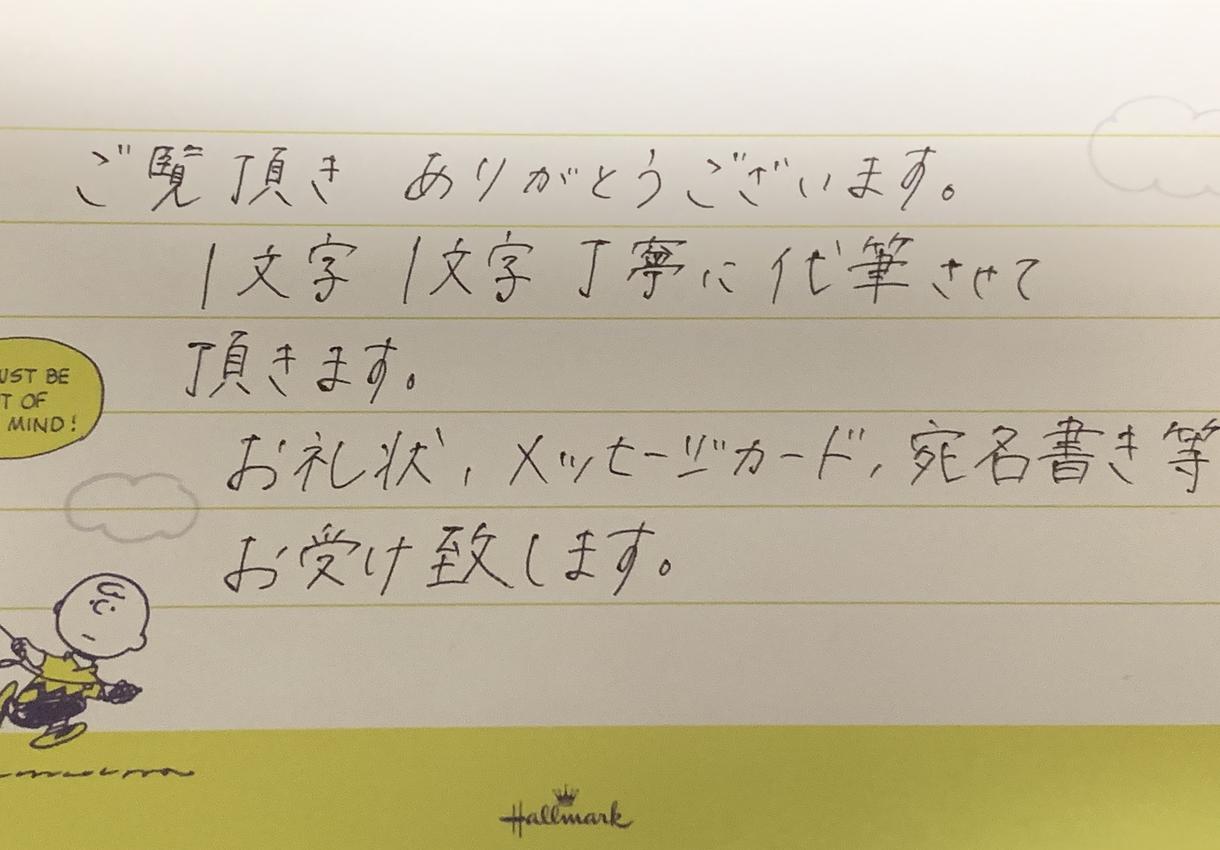 ご覧頂き ありがとうございます。
1文字 1文字 丁寧に代筆させて
頂きます。
UST BE
T OF
MIND!
お礼状, メッセージカード, 宛名書き等
お受け致します。
Hallmark